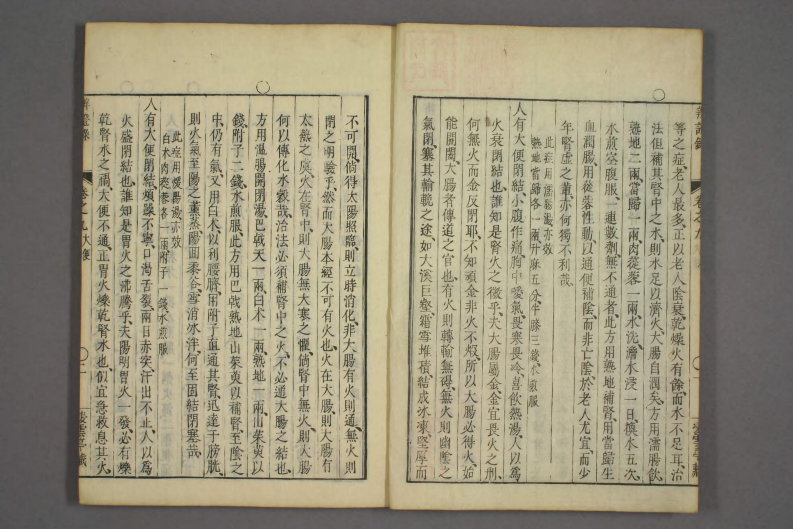 等之症老人最多正以老人陰衰乾燥火有餘而水不足耳治
法但補其腎中之水則水足以濟火大腸自潤矣方用濡腸飲
熟地二兩當歸一兩肉蓯蓉一兩水洗淡水浸一日換水五次
水煎空腹服一連數劑無不通者此方用熟地補腎用當歸生
血潤腸用蓯蓉性動以通便補陰而非亡陰於老人尤宜而少
年腎虛之輩亦何獨不利哉
此症用濡腸湯亦效
熟地當歸各一兩升麻五分牛膝三錢水煎服
人有大便閉結小腹作痛胸中噯氣畏寒畏冷喜飲熱湯人以為
火衰閉結也誰知是腎火之微乎夫大腸屬金金宜畏火之刑
何無火而金反閉耶不知頑金非火不煅所以大腸必得火始
能開闔大腸者傳道之官也有火則轉輸無礙無火則幽陰之
氣閉塞其輸輓之途如大溪巨壑霜雪堆積結成冰凍堅厚而
不可開倘得太陽照臨則立時消化非大腸有火則通無火則
閉之明驗乎然而大腸本經不可有火也火在大腸則大腸有
太熱之虞火在腎中則大腸無大寒之懼倘腎中無火則大腸
何以傳化水穀哉治法必須補腎中之火不必通大腸之結也
方用溫腸開閉湯巴戟天一兩白朮一兩熟地一兩山茱萸五
錢附子二錢水煎服此方用巴戟熟地山茱萸以補腎至陰之
中仍有至陽之氣又用白朮以利腰臍用附子直通其腎迅達于膀胱
則火氣至陽之薰蒸陽回黍谷雪消冰泮何至固結閉塞哉
此症用煖陽湯亦效
白朮肉蓯蓉各一兩附子一錢水煎服
人有大便閉結煩躁不寧口渴舌裂兩目赤突汗出不止人以為
火盛閉結也誰知是胃火之沸騰乎夫陽明胃火一發必有爍
乾腎水之禍大便不通正胃火爍乾腎水也似宜急救息其火
卷之九大便